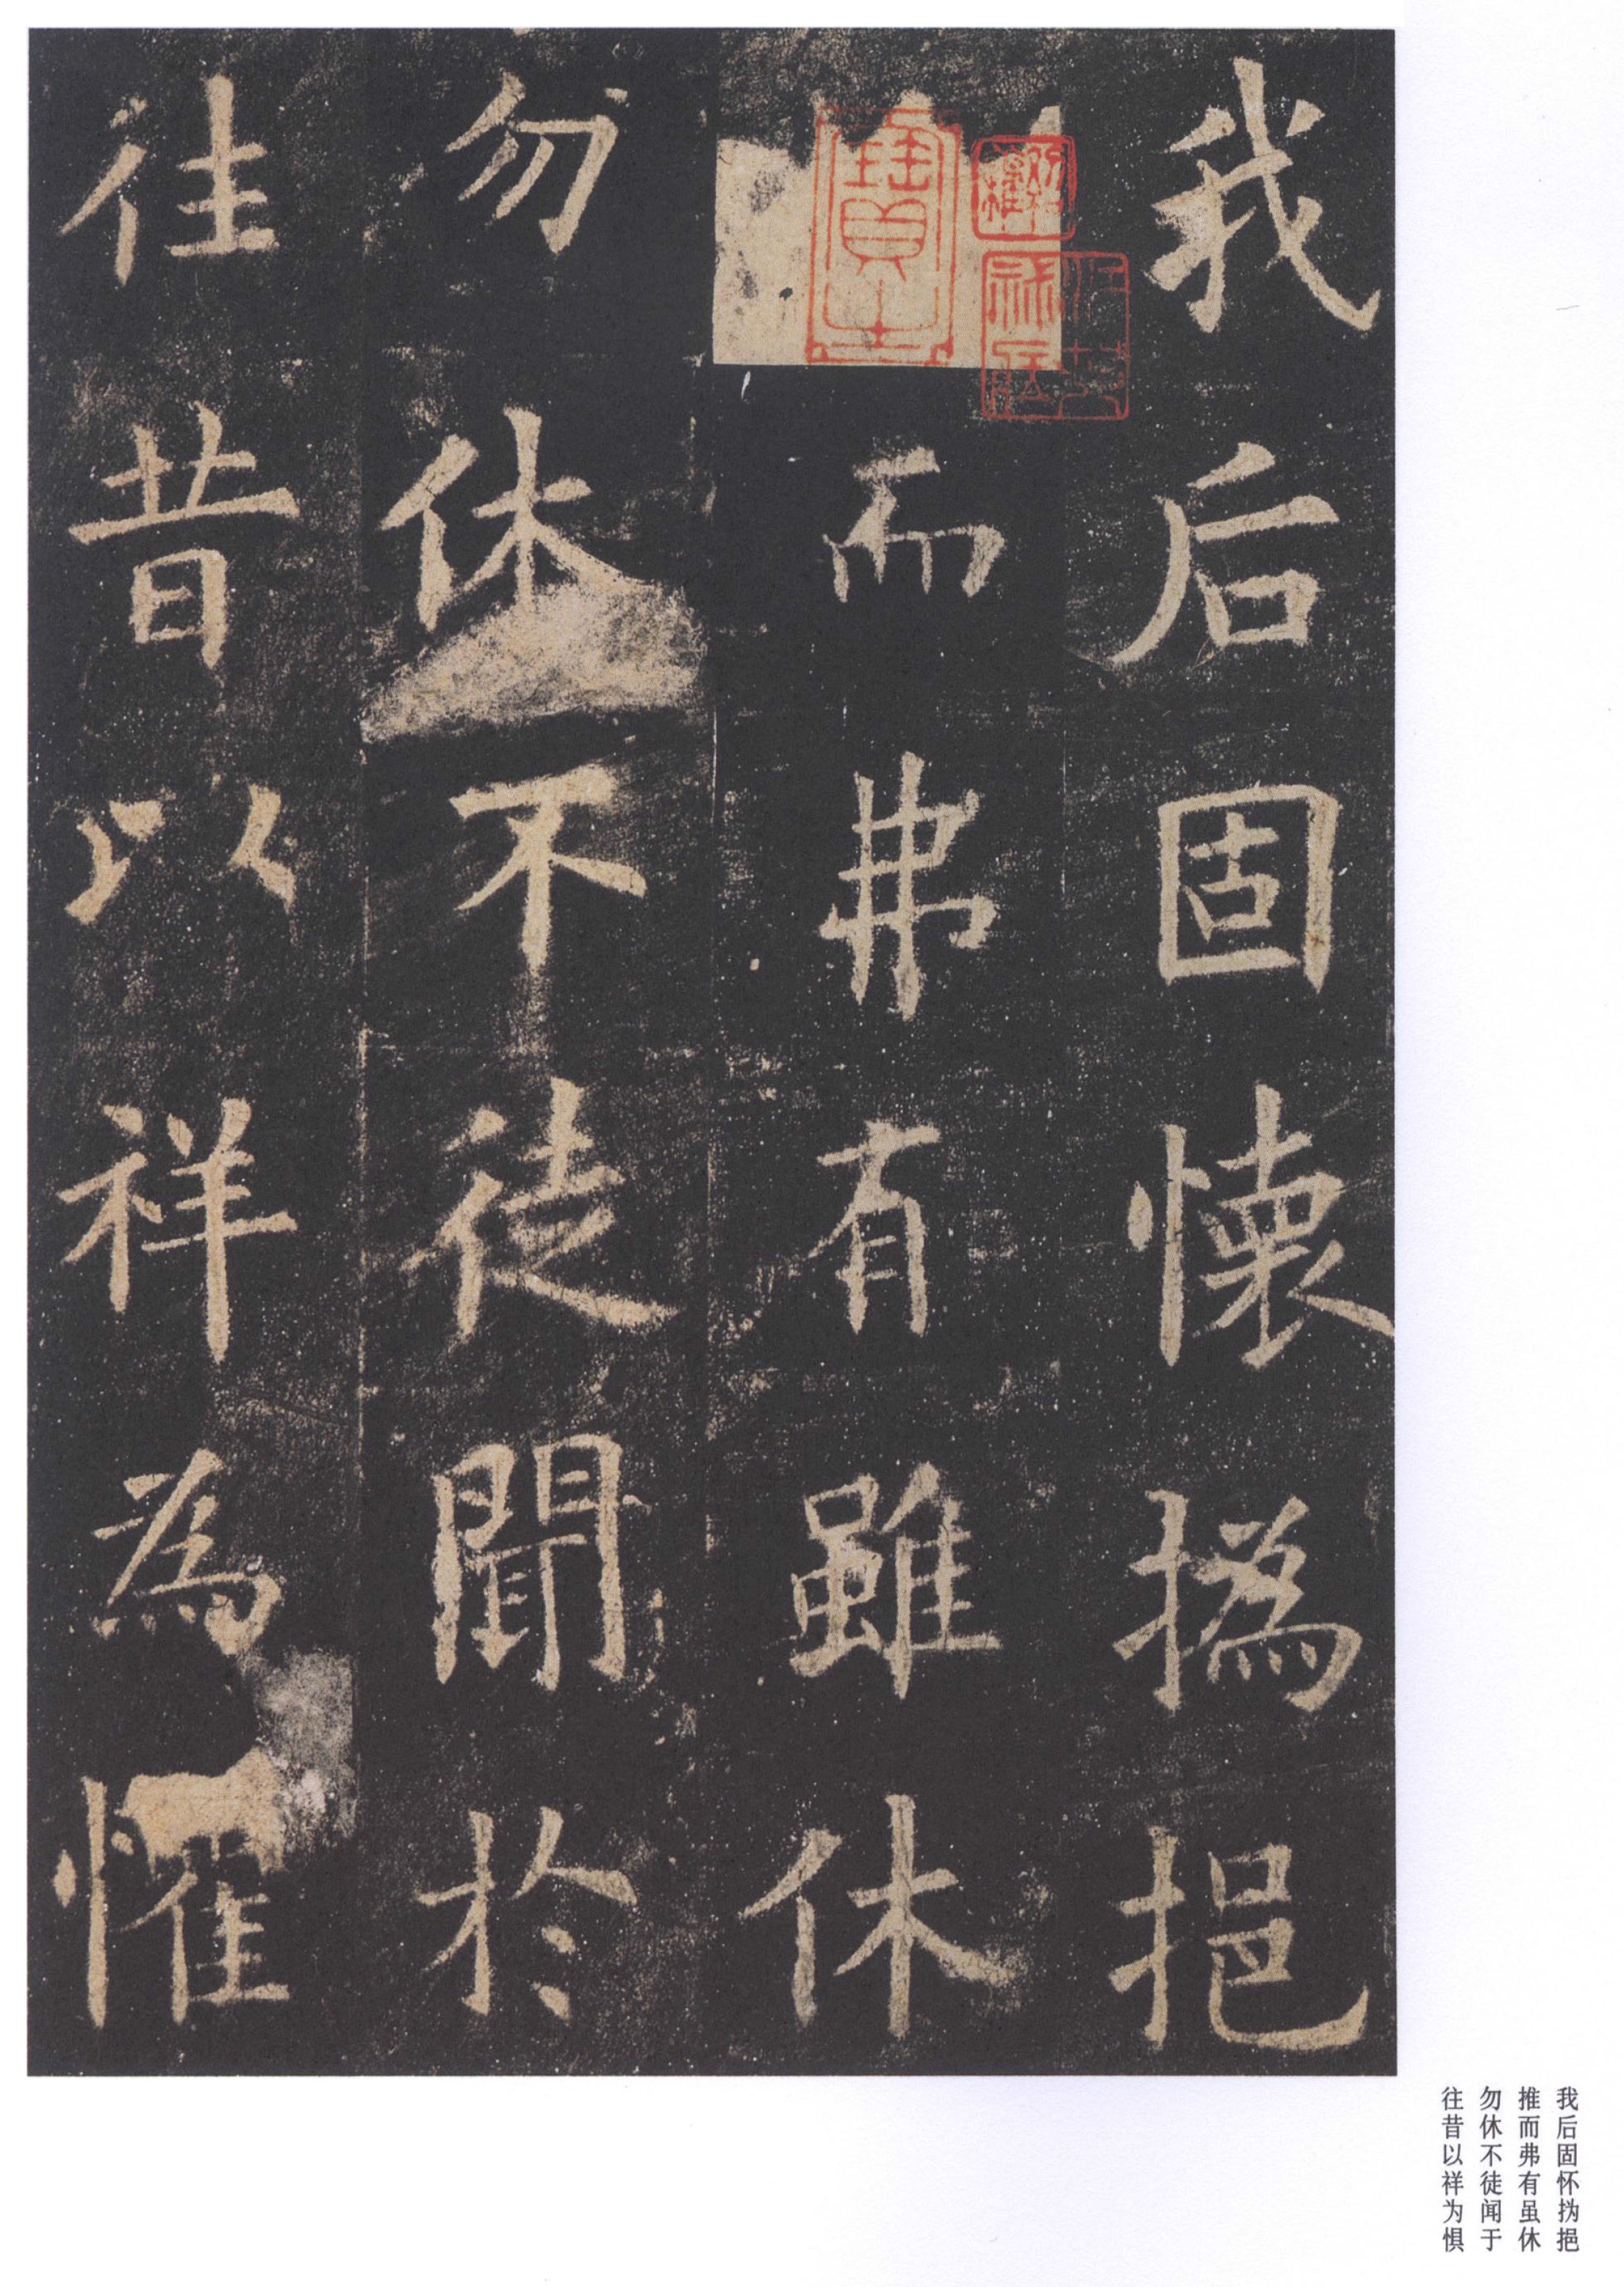 我后固懷撝挹
而弗有雖休
勿休不徒聞於
往昔以祥為懼
寶
我后固怀㧑挹
推而弗有虽休
勿休不徒闻于
往昔以祥为惧